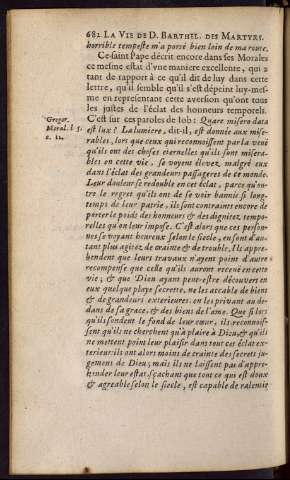 682 LA VIE DE D. BARTHEL. DES MARTYRS.
horrible tempeste m'a porté bien loin de ma route.
Ce saint Pape décrit encore dans ses Morales
ce mesme estat d'vne maniere excellente, qui a
tant de rapport à ce qu'il dit de luy dans cette
lettre, qu'il semble qu'il s'est dépeint luy-mes-
me en representant cette aversion qu'ont tous
les justes de l'éclat des honneurs temporels.
Gregor. Moral. l. 5. c. 12.
C'est sur ces paroles de Iob: Quare misero data
est lux? La lumiere, dit-il, est donnée aux mise-
rables, lors que ceux qui reconnoissent par la veuë
qu'ils ont des choses eternelles qu'ils sont misera-
bles en cette vie, se voyent élevez malgré eux
dans l'éclat des grandeurs passageres de ce monde.
Leur douleur se redouble en cet éclat, parce qu'on-
tre le regret qu'ils ont de se voir bannis si long-
temps de leur patrie, ils sont contraints encore de
porter le poids des honneurs & des dignitez tempo-
relles qu'on leur impose. C'est alors que ces person-
nes se voyant honorez selon le siecle, en sont d'au-
tant plus agitez de crainte & de trouble, Ils appre-
hendent que leurs travaux n'ayent point d'autre
recompense que celle qu'ils auront receuë en cette
vie; & que Dieu ayant peut-estre découvert en
eux quelque playe secrette, ne les accable de biens
& de grandeurs exterieures, en les privant au de-
dans de sa grace, & des biens de l'ame. Que si lors
qu'ils sondent le fond de leur cœur, ils reconnois-
sent qu'ils ne cherchent qu'à plaire à Dieu, & qu'ils
ne mettent point leur plaisir dans tout cet éclat ex-
terieur: ils ont alors moins de crainte des secrets ju-
gemens de Dieu; mais ils ne laissent pas d'appre-
hender leur estat, sçachant que tout ce qui est doux
& agreable selon le siecle, est capable de ralentir